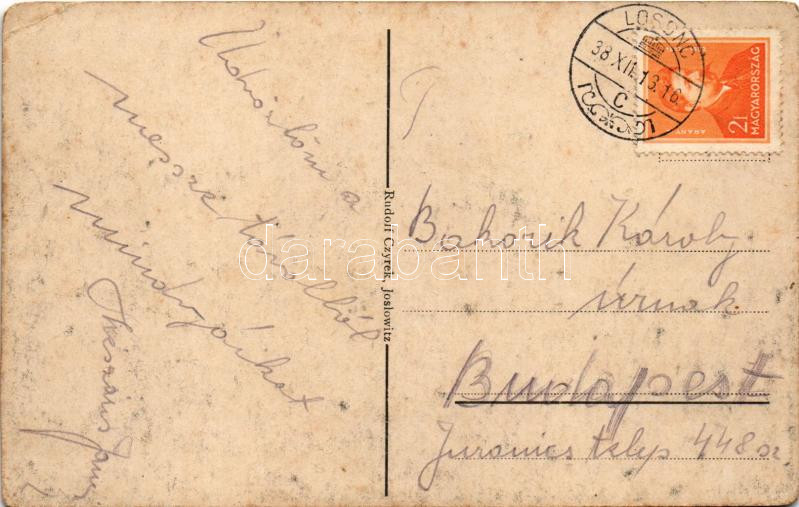 Üdvözlöm a
messze távolból
mindnyájukat
LOSONC
38 XII.13.16
C
MAGYARORSZÁG
2f
ARANY
T.
Bakorik Károly
úrnak
Budapest
Juranics telep 448 sz
Rudolf Czyrek, Joslowitz
darabanth